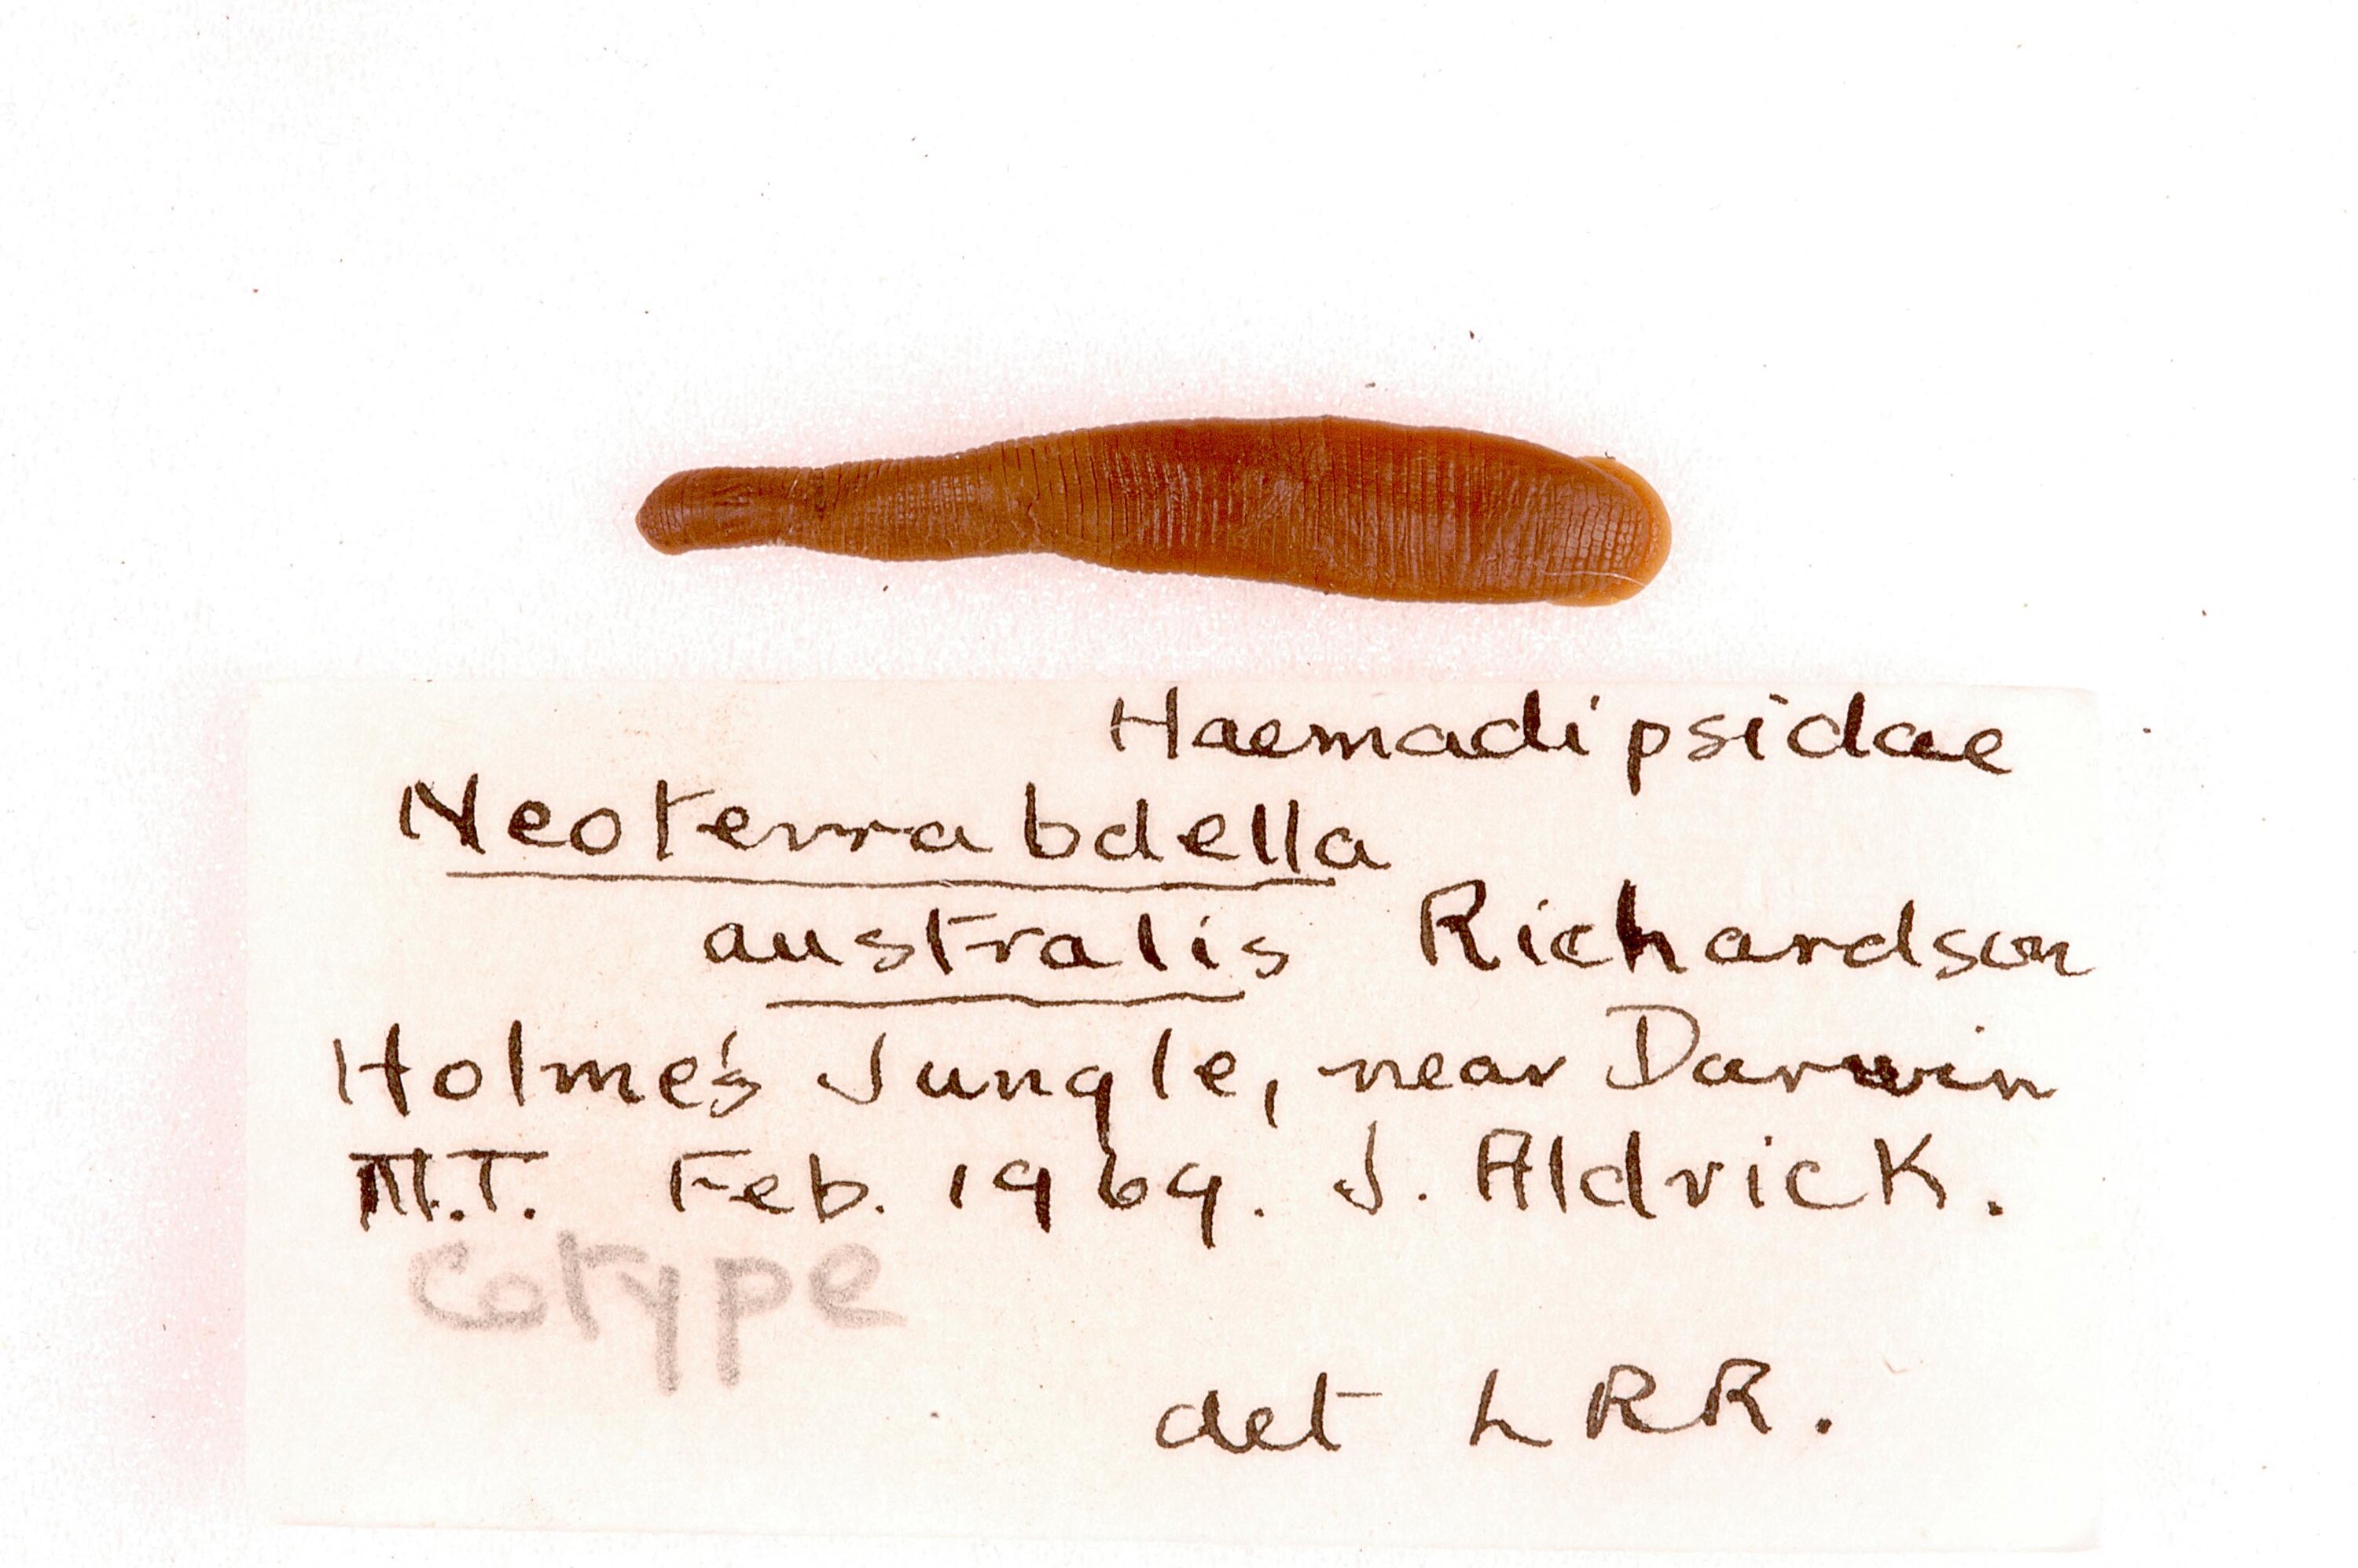 Haemadipsidae
Neoterrabdella
australis Richardson
Holme's Jungle, near Darwin
N.T. Feb. 1969. J. Aldrick.
Cotype
det LRR.